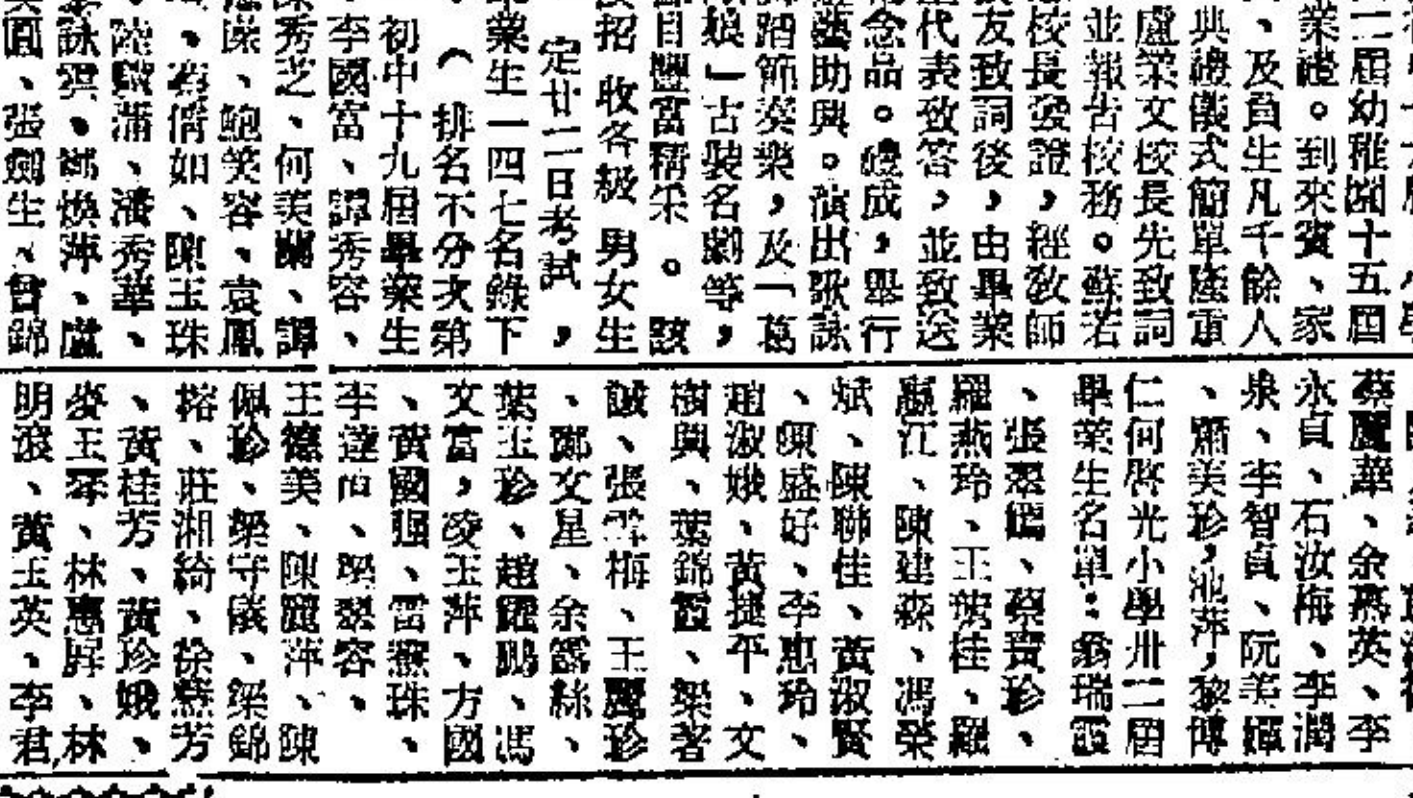 二屆幼稚園十五屆
業禮。到來賓、家
、及員生凡千餘人
典禮儀式簡單隆重
盧榮文校長先致詞
並報告校務。蘇若
校長發證，經敎師
友致詞後，由畢業
代表致答，並致送
念品。禮成，舉行
藝助興。演出歌詠
踏節奏樂，及「葛
娘」古裝名劇等，
目豐富精采。該
招收各級男女生
定廿二日考試，
業生一四七名錄下
（排名不分次第
初中十九屆畢業生
李國富、譚秀容、
秀芝、何美蘭、譚
、鮑笑容、袁鳳
倩如、陳玉珠
陸 蒲、潘秀華、
詠雲、鄭煥萍、盧
圓、張劍生、曾錦
蔡麗華、余燕英、李
永貞、石汝梅、李潤
泉、李智貞、阮美嬋
、蕭美珍，池萍，黎博
仁何啓光小學卅二屆
畢業生名單：翁瑞霞
、張翠嫦、蔡寶珍、
羅燕玲、王 桂、羅
江、陳建森、馮榮
斌、陳聯佳、黃淑賢
、陳盛好、李惠玲、
趙淑娥、黃捷平、文
樹興、葉錦霞、梁著
誠、張雪梅、王麗珍
、鄭文星、余露絲、
葉玉珍、趙 鵬、馮
文富，凌玉萍、方國
、黃國強、雷 珠、
李達 、梁翠容、
王德美、陳麗萍、陳
佩珍、梁守儀、梁錦
榕、莊湘綺、徐燕芳
、黃桂芳、黃珍娥、
麥玉琴、林惠屏、林
明滾、黃玉英、李君